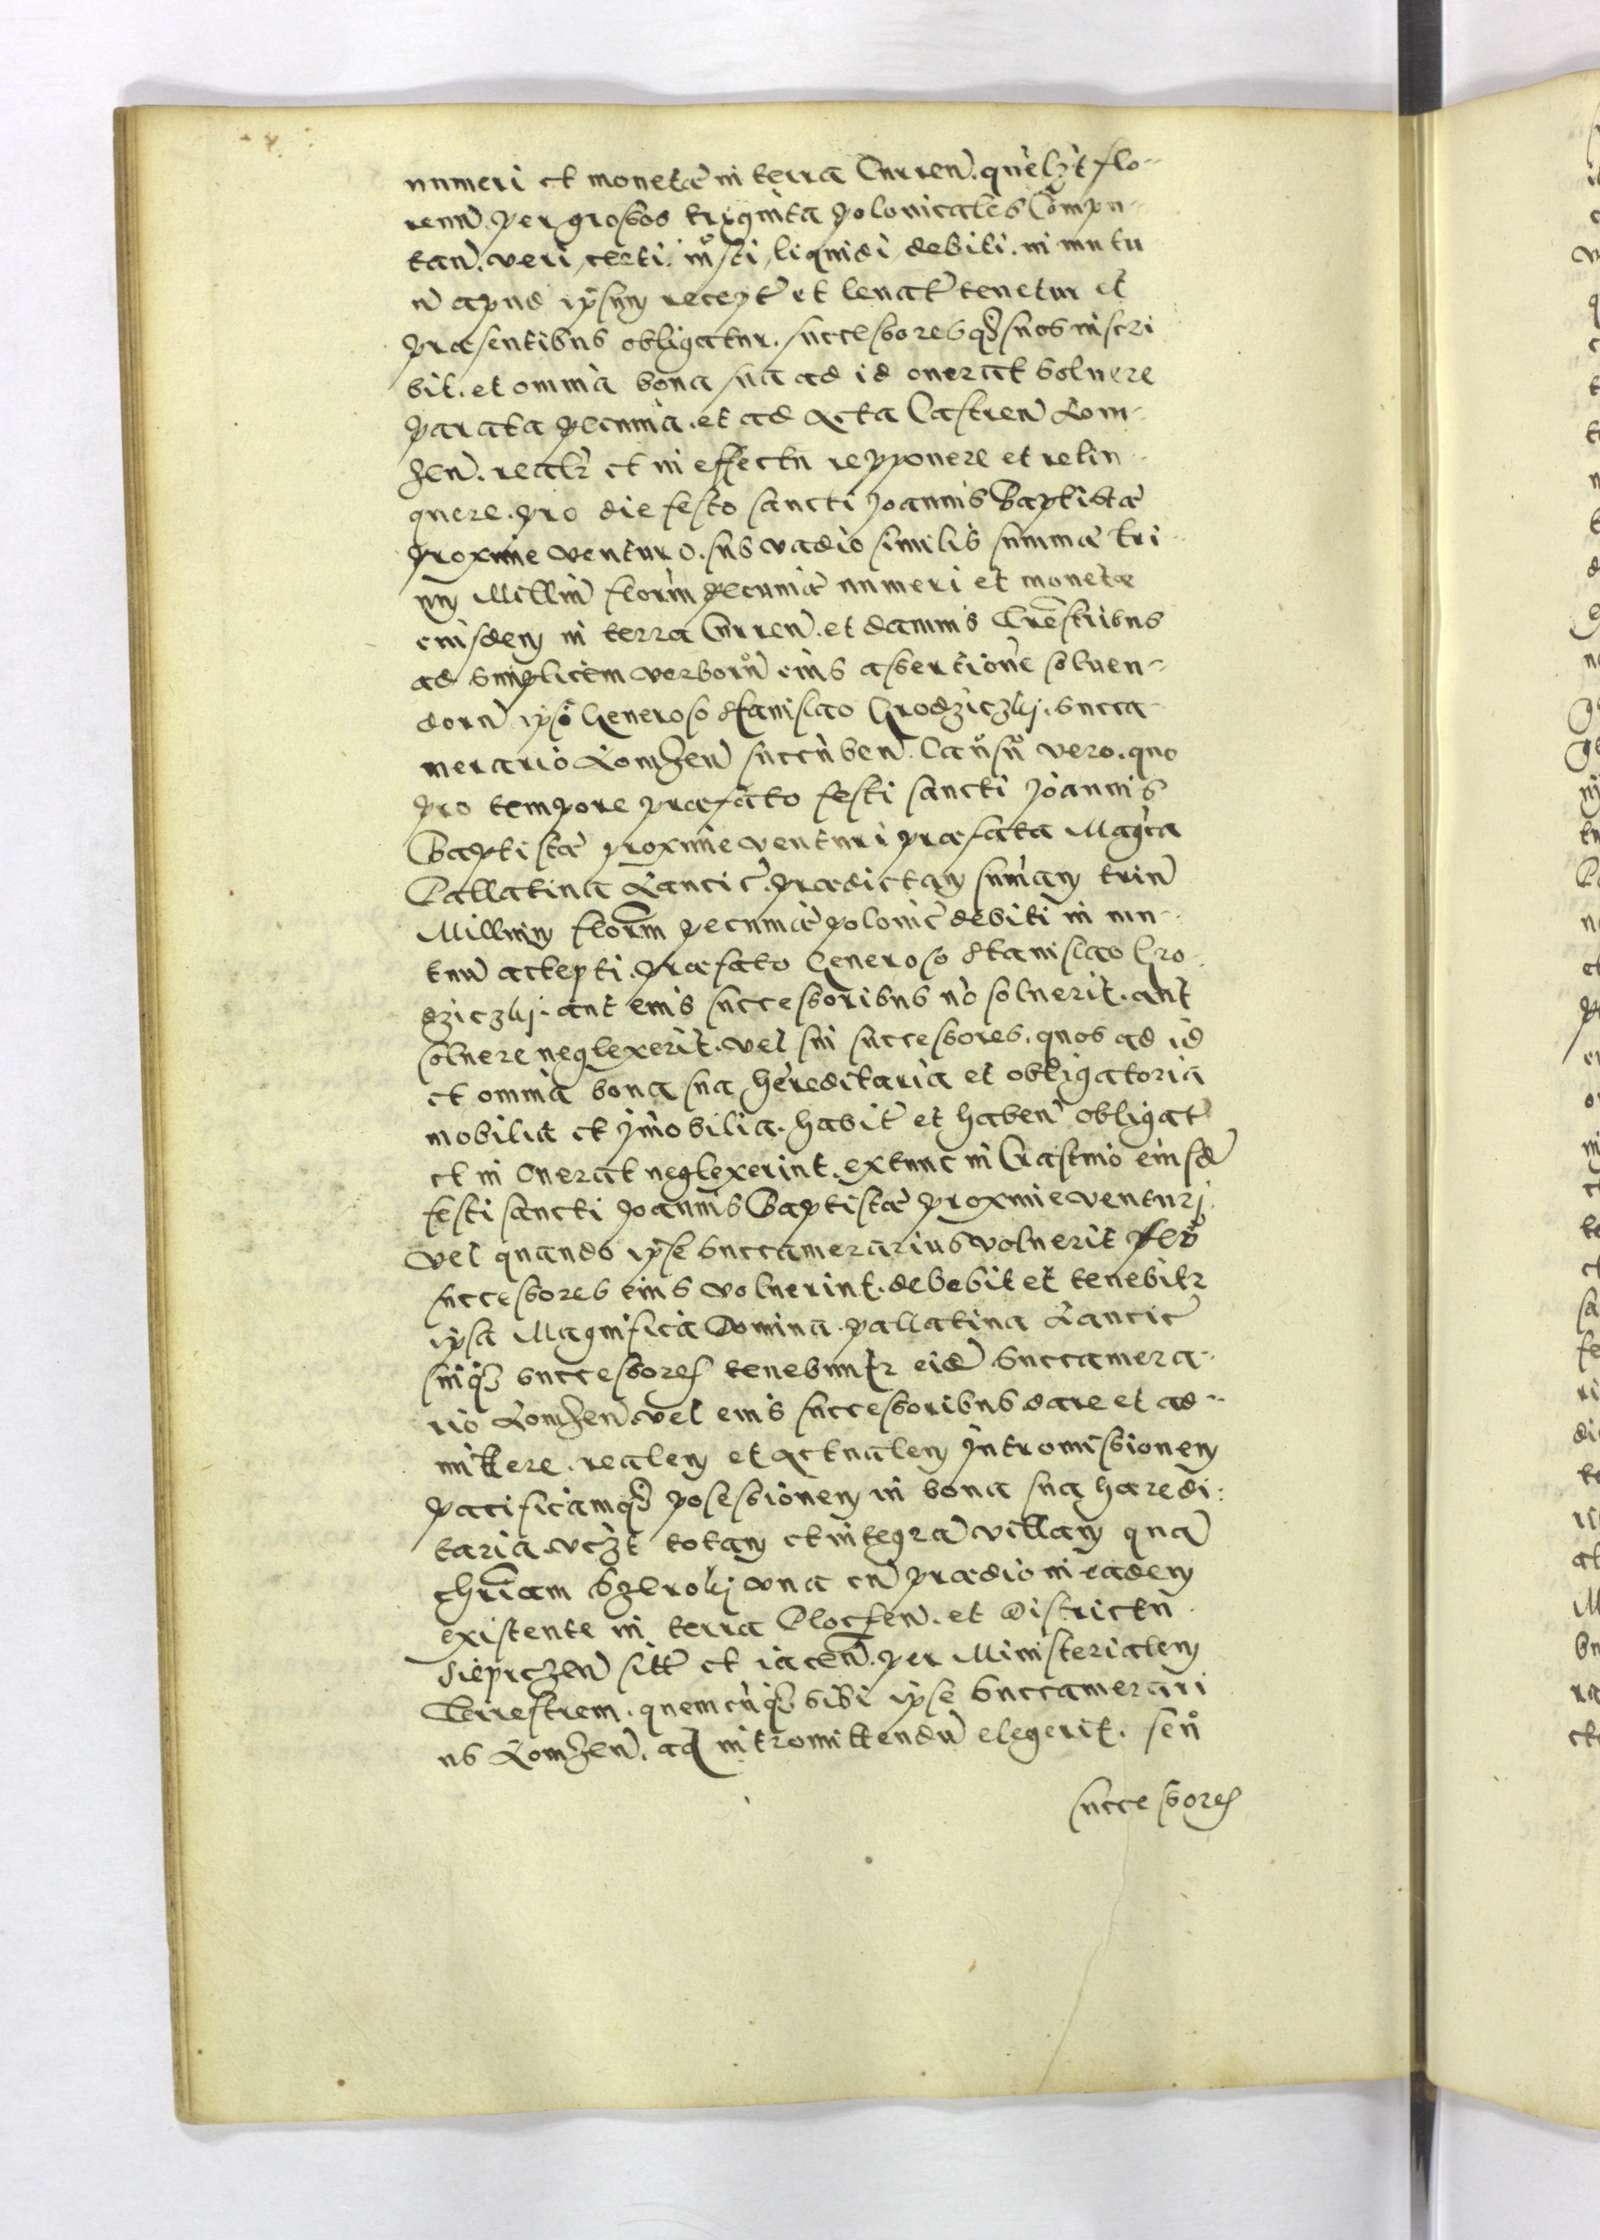 numeri et monetæ in terra Curren. quelżt flo-
renū. per grossos triginta polonicales Compu-
tan̄. veri, certi. iusti, liquidi debiti. in mutu
ū apud ipsum recept̄ et leuat̄ tenetur et
præsentibus obligatur. successoresq₃ suos inscri
bit. et omnia bona sua ad id onerat soluere
parata pecunia. et ad Acta Castren̄ Lom-
zen̄. realr̄ et in effectu repponere et relin-
quere. pro die festo sancti Joannis Baptistæ
proxime venturo. sub vadio similis summæ tri-
um Milliū florim pecuniæ numeri et monetæ
eiusdem in terra Curren̄. et damnis Trēstribus
ad simplicem verborū eius assertionē soluen-
dorū ipso Generoso Stanislao Grodziczkj. succa-
merario Lomzen̄ succūben̄. Causū vero. quo
pro tempore præfato festi sancti Joannis
Baptistæ proxime venturi præfata Magca
Pallatina Lancic̄. prædictam sumam trium̄
Millium florm̄ pecuniæ polonic̄ debiti in mu-
tuū accepti. præfato Generoso Stanislao Gro-
dziczkj. aut eius successoribus nō soluerit. aut
soluere neglexerit. vel sui successores. quos ad id
et omnia bona sua hereditaria et obligatoria
mobilia et imobilia. habit̄ et haben̄ obligat
et in onerat neglexerint. extunc in Crastino eiusdē
festi sancti Joannis Baptistæ proxime venturj.
vel quando ipse succamerarius voluerit seu
successores eius voluerint. debebit et tenebitr
ipsa Magnifica Domina. pallatina Lancic̄
suiq₃ successores tenebuntr eidē succamera-
rio Lomzen̄ vel eius successoribus dare et ad-
mittere. realem et Actualem Intromissionem
pacificamq₃ posessionem in bona sua hæredi:
taria. vcżt totam et integrā villam quā
chr̄iam Szerokj vna cū prædio in eadem
existente in terra Ploczen̄. et Districtu
Sieprczen̄ sitt̄ et iacen̄. per Ministerialem
Terrestrem. quemcūq₃ sibi ipse Succamerari
us Lomzen̄. ad intromittendū elegerit. seu
successores